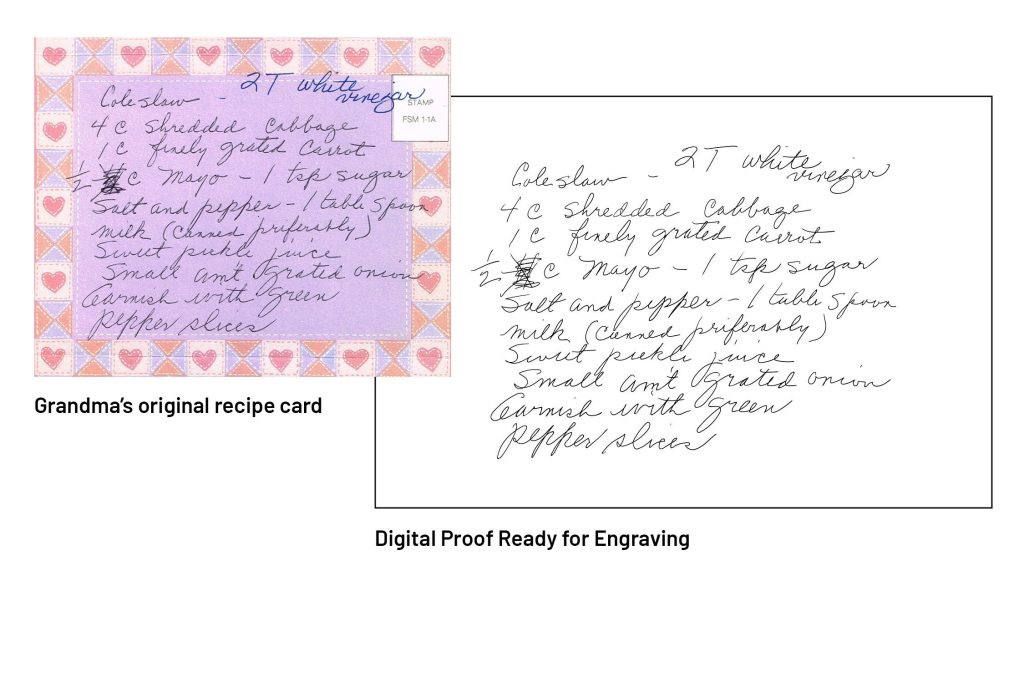 2T white
vinegar
Cole slaw -
STAMP
FSM 1-1A
4 C Shredded Cabbage
1 C finely grated Carrot
1/2 C Mayo - 1 tsp sugar
Salt and pepper - 1 table spoon
milk (Canned priferably)
Sweet pickle juice
Small am't grated onion
Garnish with green
pepper slices
Grandma's original recipe card
2T white
vinegar
Cole slaw -
4 C Shredded Cabbage
1 C finely grated Carrot
1/2 C Mayo - 1 tsp sugar
Salt and pepper - 1 table spoon
milk (Canned priferably)
Sweet pickle juice
Small am't grated onion
Garnish with green
pepper slices
Digital Proof Ready for Engraving